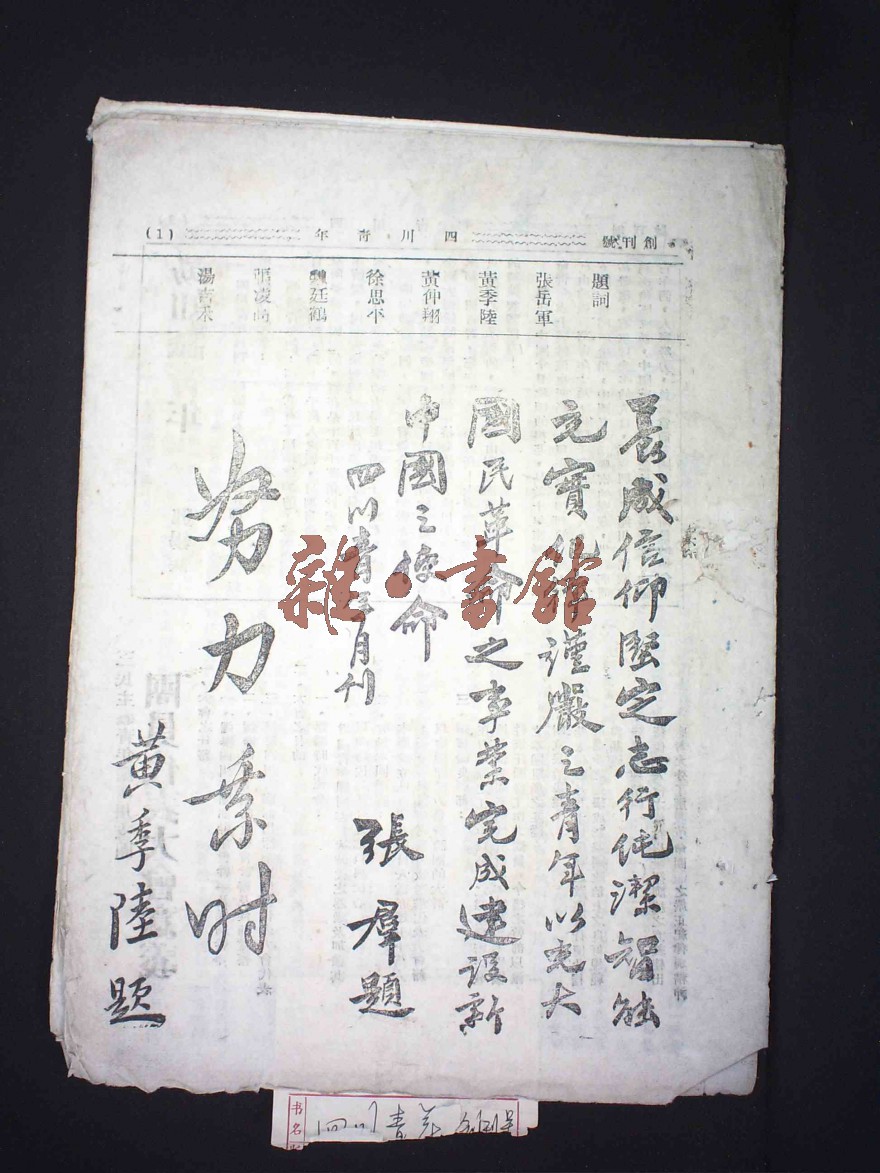 創刊號 四川青年 (1)
題詞
張岳軍
黃季陸
黃仲翔
徐思平
魏廷鶴
張凌高
湯吉禾
養成信仰堅定志行純潔智能
充實紀律謹嚴之青年以光大
國民革命之事業完成建設新
中國之使命
四川青年月刊
張羣題
努力乘时
黃季陸題
雜·書館
书名
四川青年 創刊号